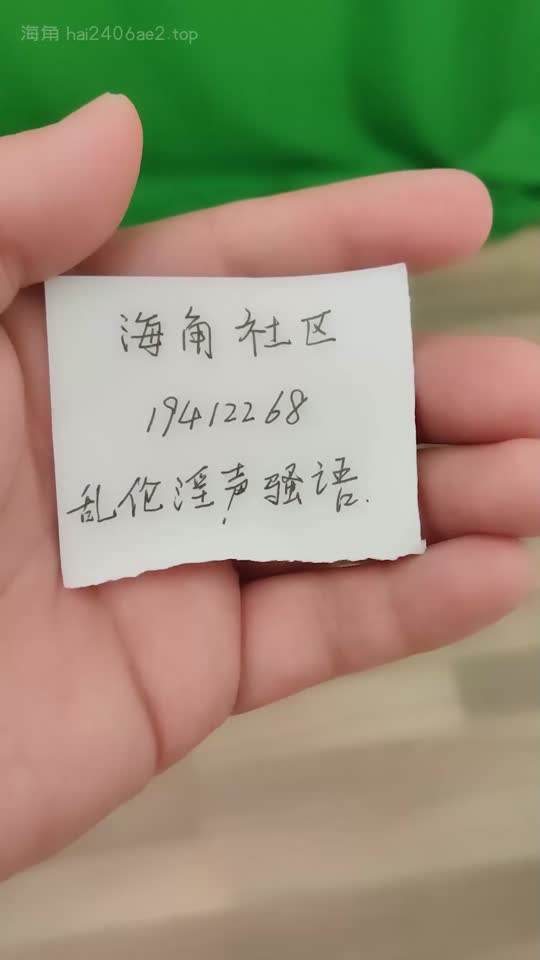 海角 hai2406ae2.top
海角社区
19412268
乱伦淫声骚语.